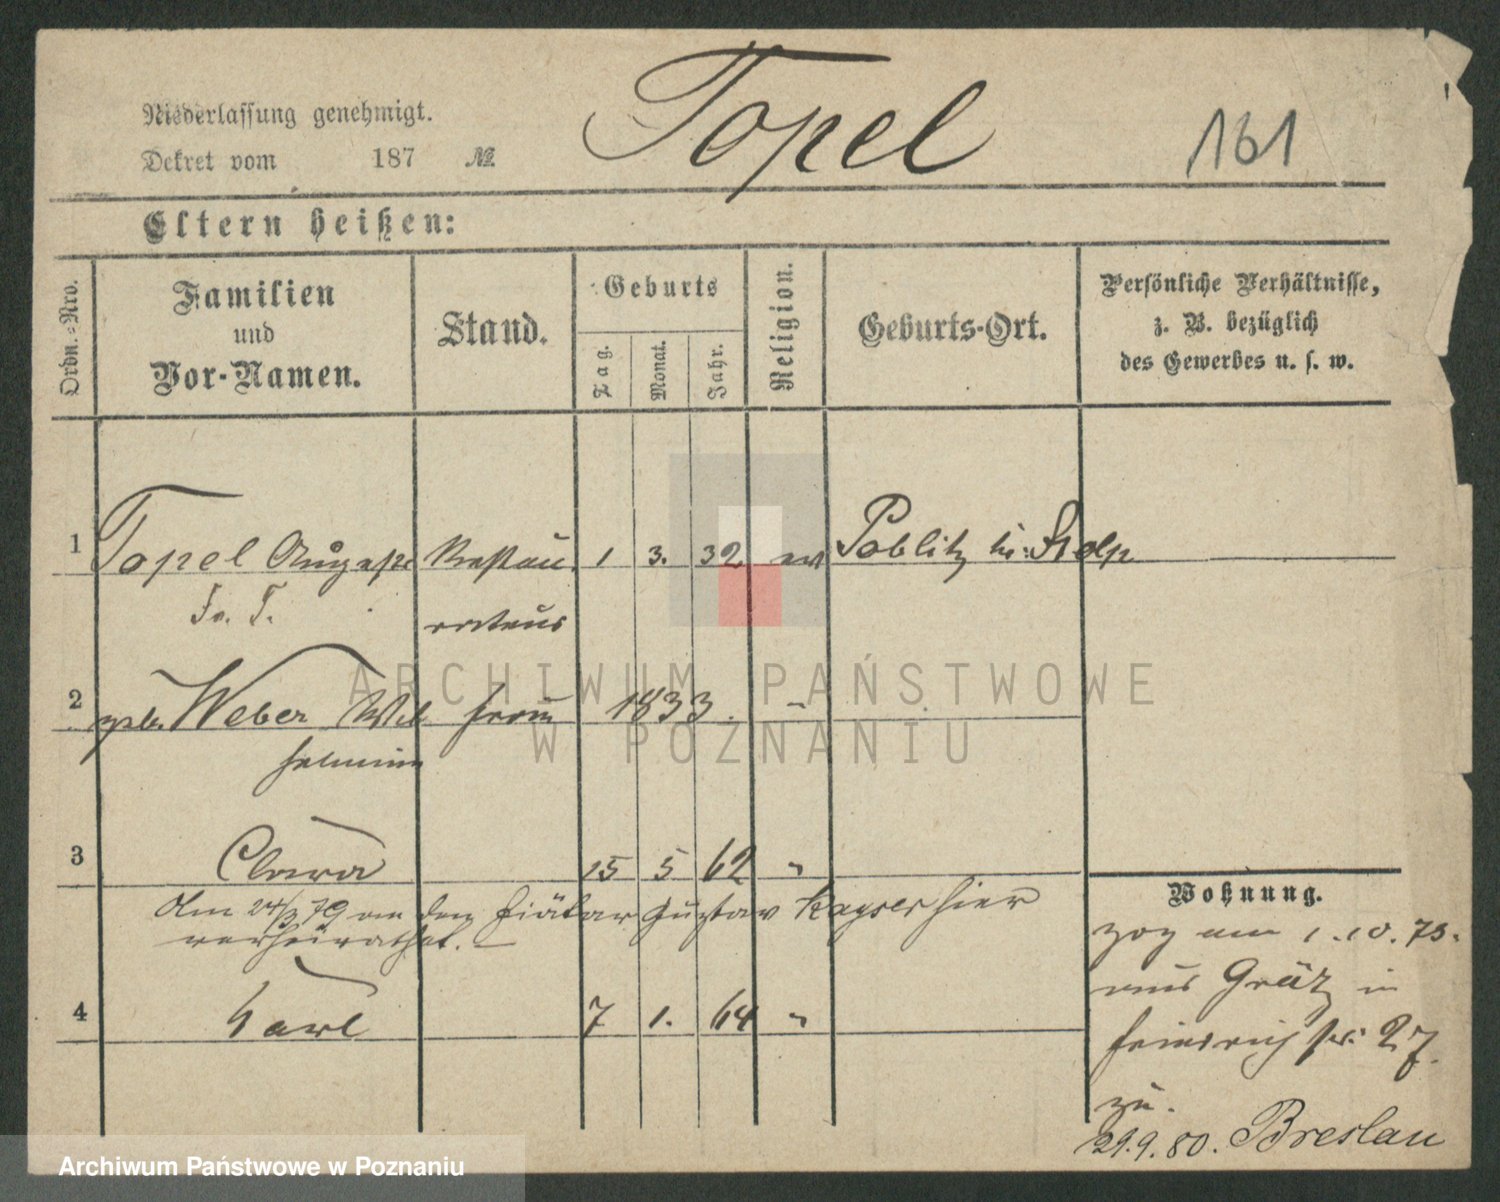 Topel
161
Niederlassung genehmigt.
Dekret vom 187 №
Eltern heißen:
Ordn.-Nro.
Familien
und
Vor-Namen.
Stand.
Geburts
Tag.
Monat.
Jahr.
Religion.
Geburts-Ort.
Persönliche Verhältnisse,
z. B. bezüglich
des Gewerbes u. s. w.
1 Topel August Restau 1 3. 32 ev Poblitz Stolp
rateur
2 geb. Weber Wil Frau 1833.
helmine
3 Clara 15 5 62 "
Am 24/3 79 an den Gustav Kayser hier
verheirathet. —
4 Karl 7 1. 64 "
Wohnung.
zog am 1.10.73.
aus Grätz in
Friedrichstr: 27.
zu.
29.9.80. Breslau
ARCHIWUM PAŃSTWOWE
W POZNANIU
Archiwum Państwowe w Poznaniu